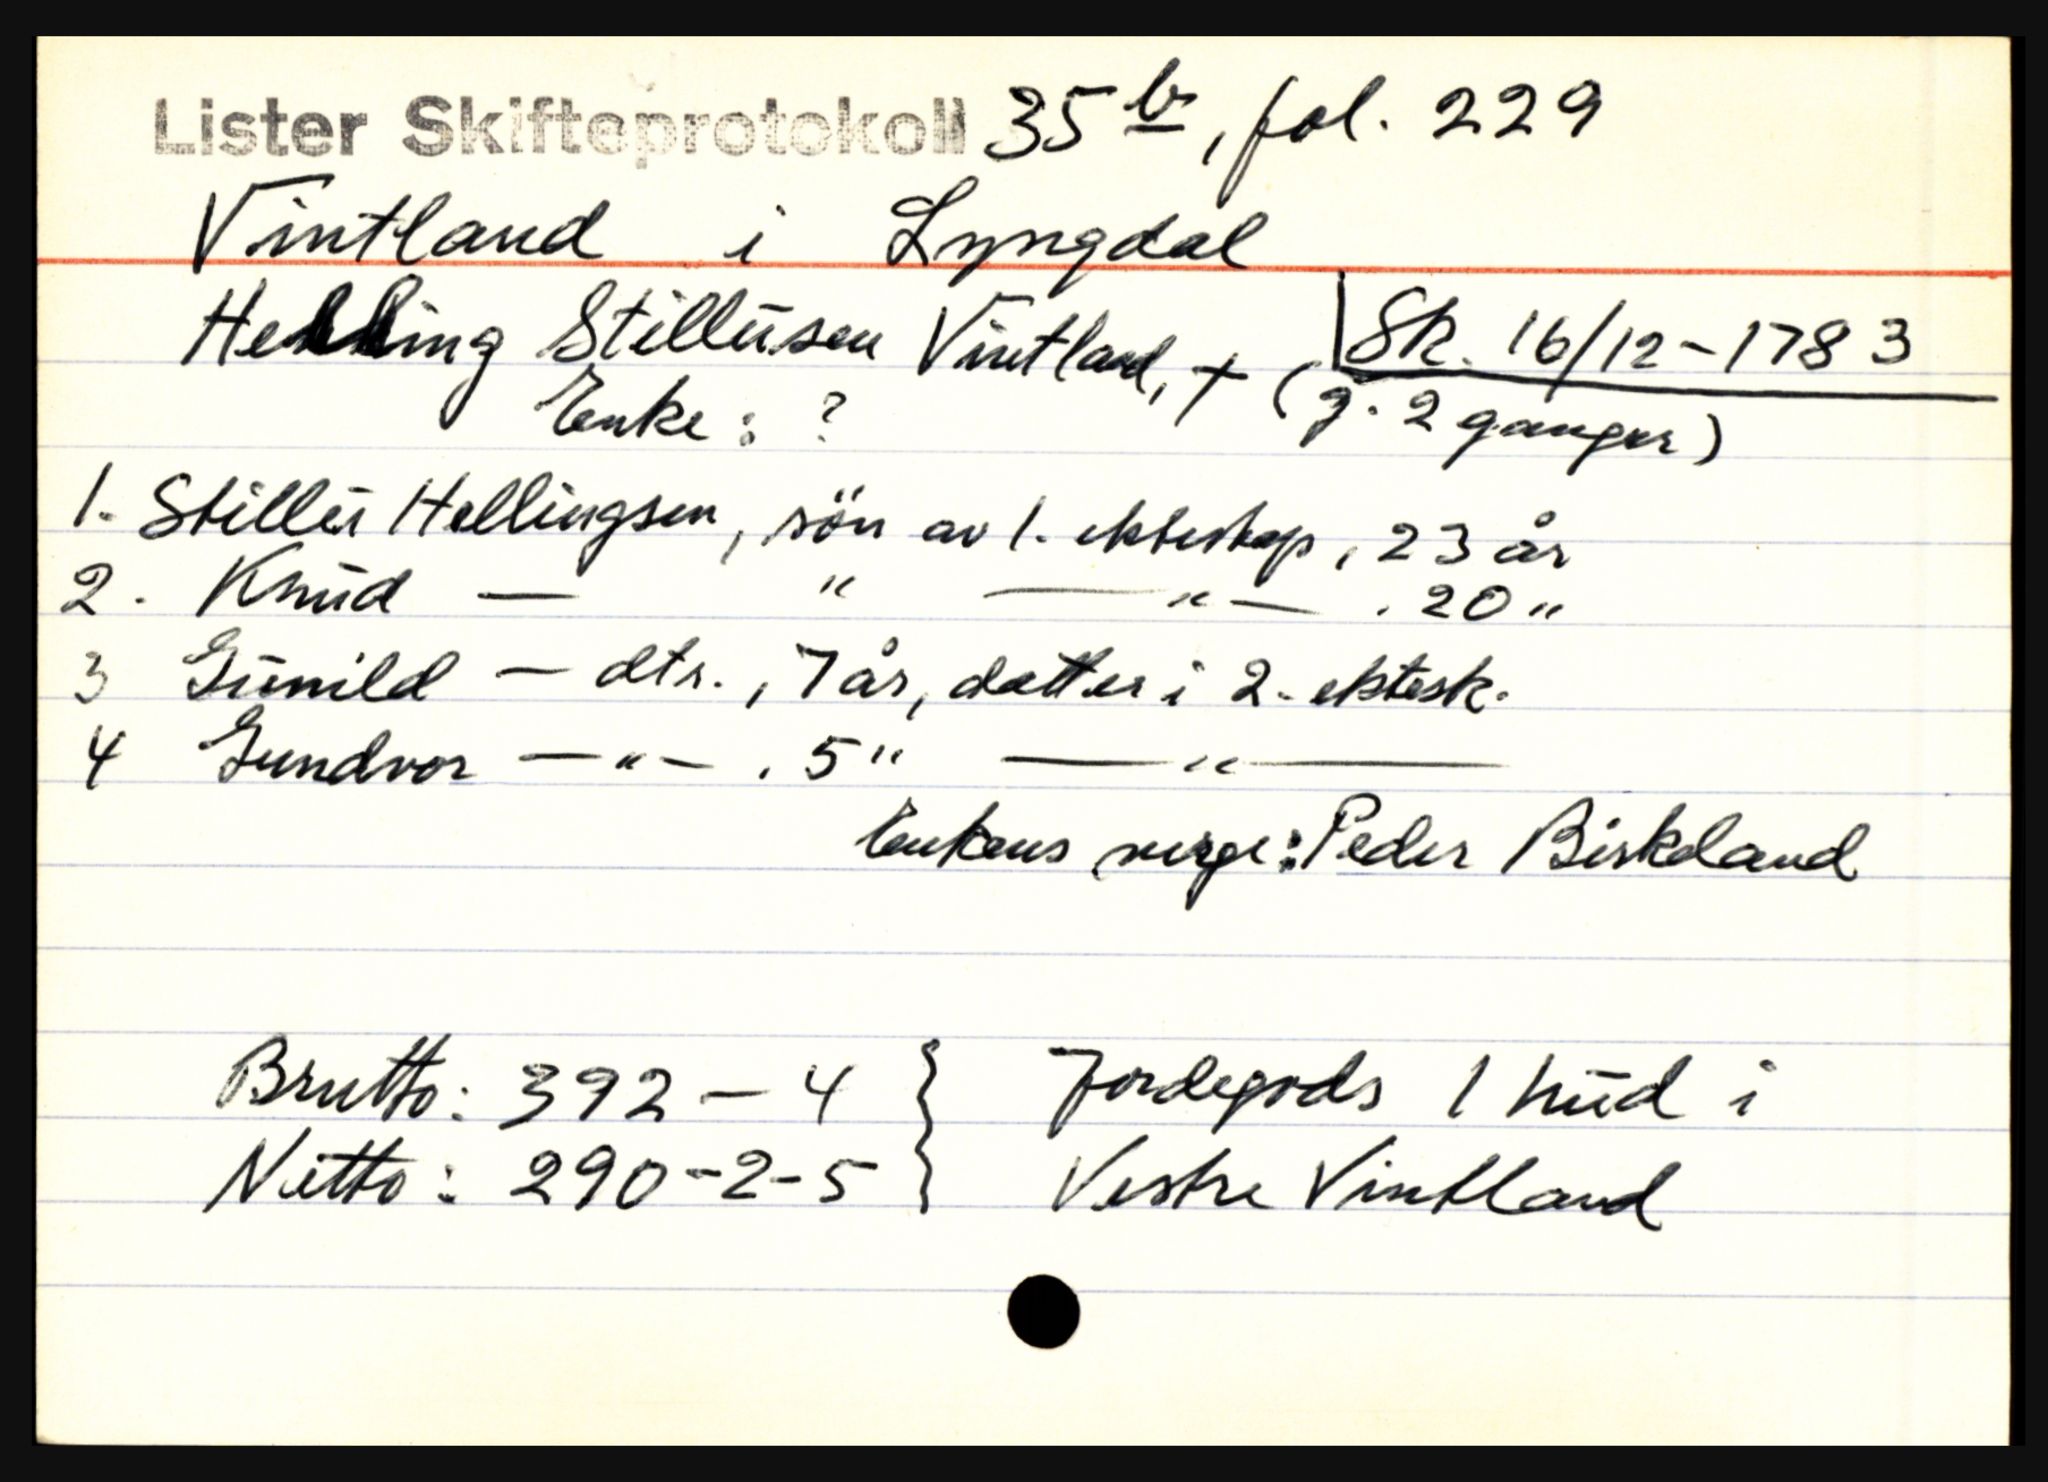 Lister Skifteprotokoll 35b, fol. 229
Vintland i Lyngdal
Helling Stillusen Vintland, + (g. 2 ganger)
Sk. 16/12-1783
Enke: ?
1. Stillu Hellingsen, sön av 1. ekteskap, 23 år
2. Knud — " — " — . 20 "
3 Gunild — dtr., 7 år, datter i 2. ektesk.
4 Gundvor — " — . 5 " — " —
Enkens verge: Peder Birkeland
Brutto: 392 - 4 } Jordegods 1 hud i
Netto: 290-2-5 } Vestre Vintland